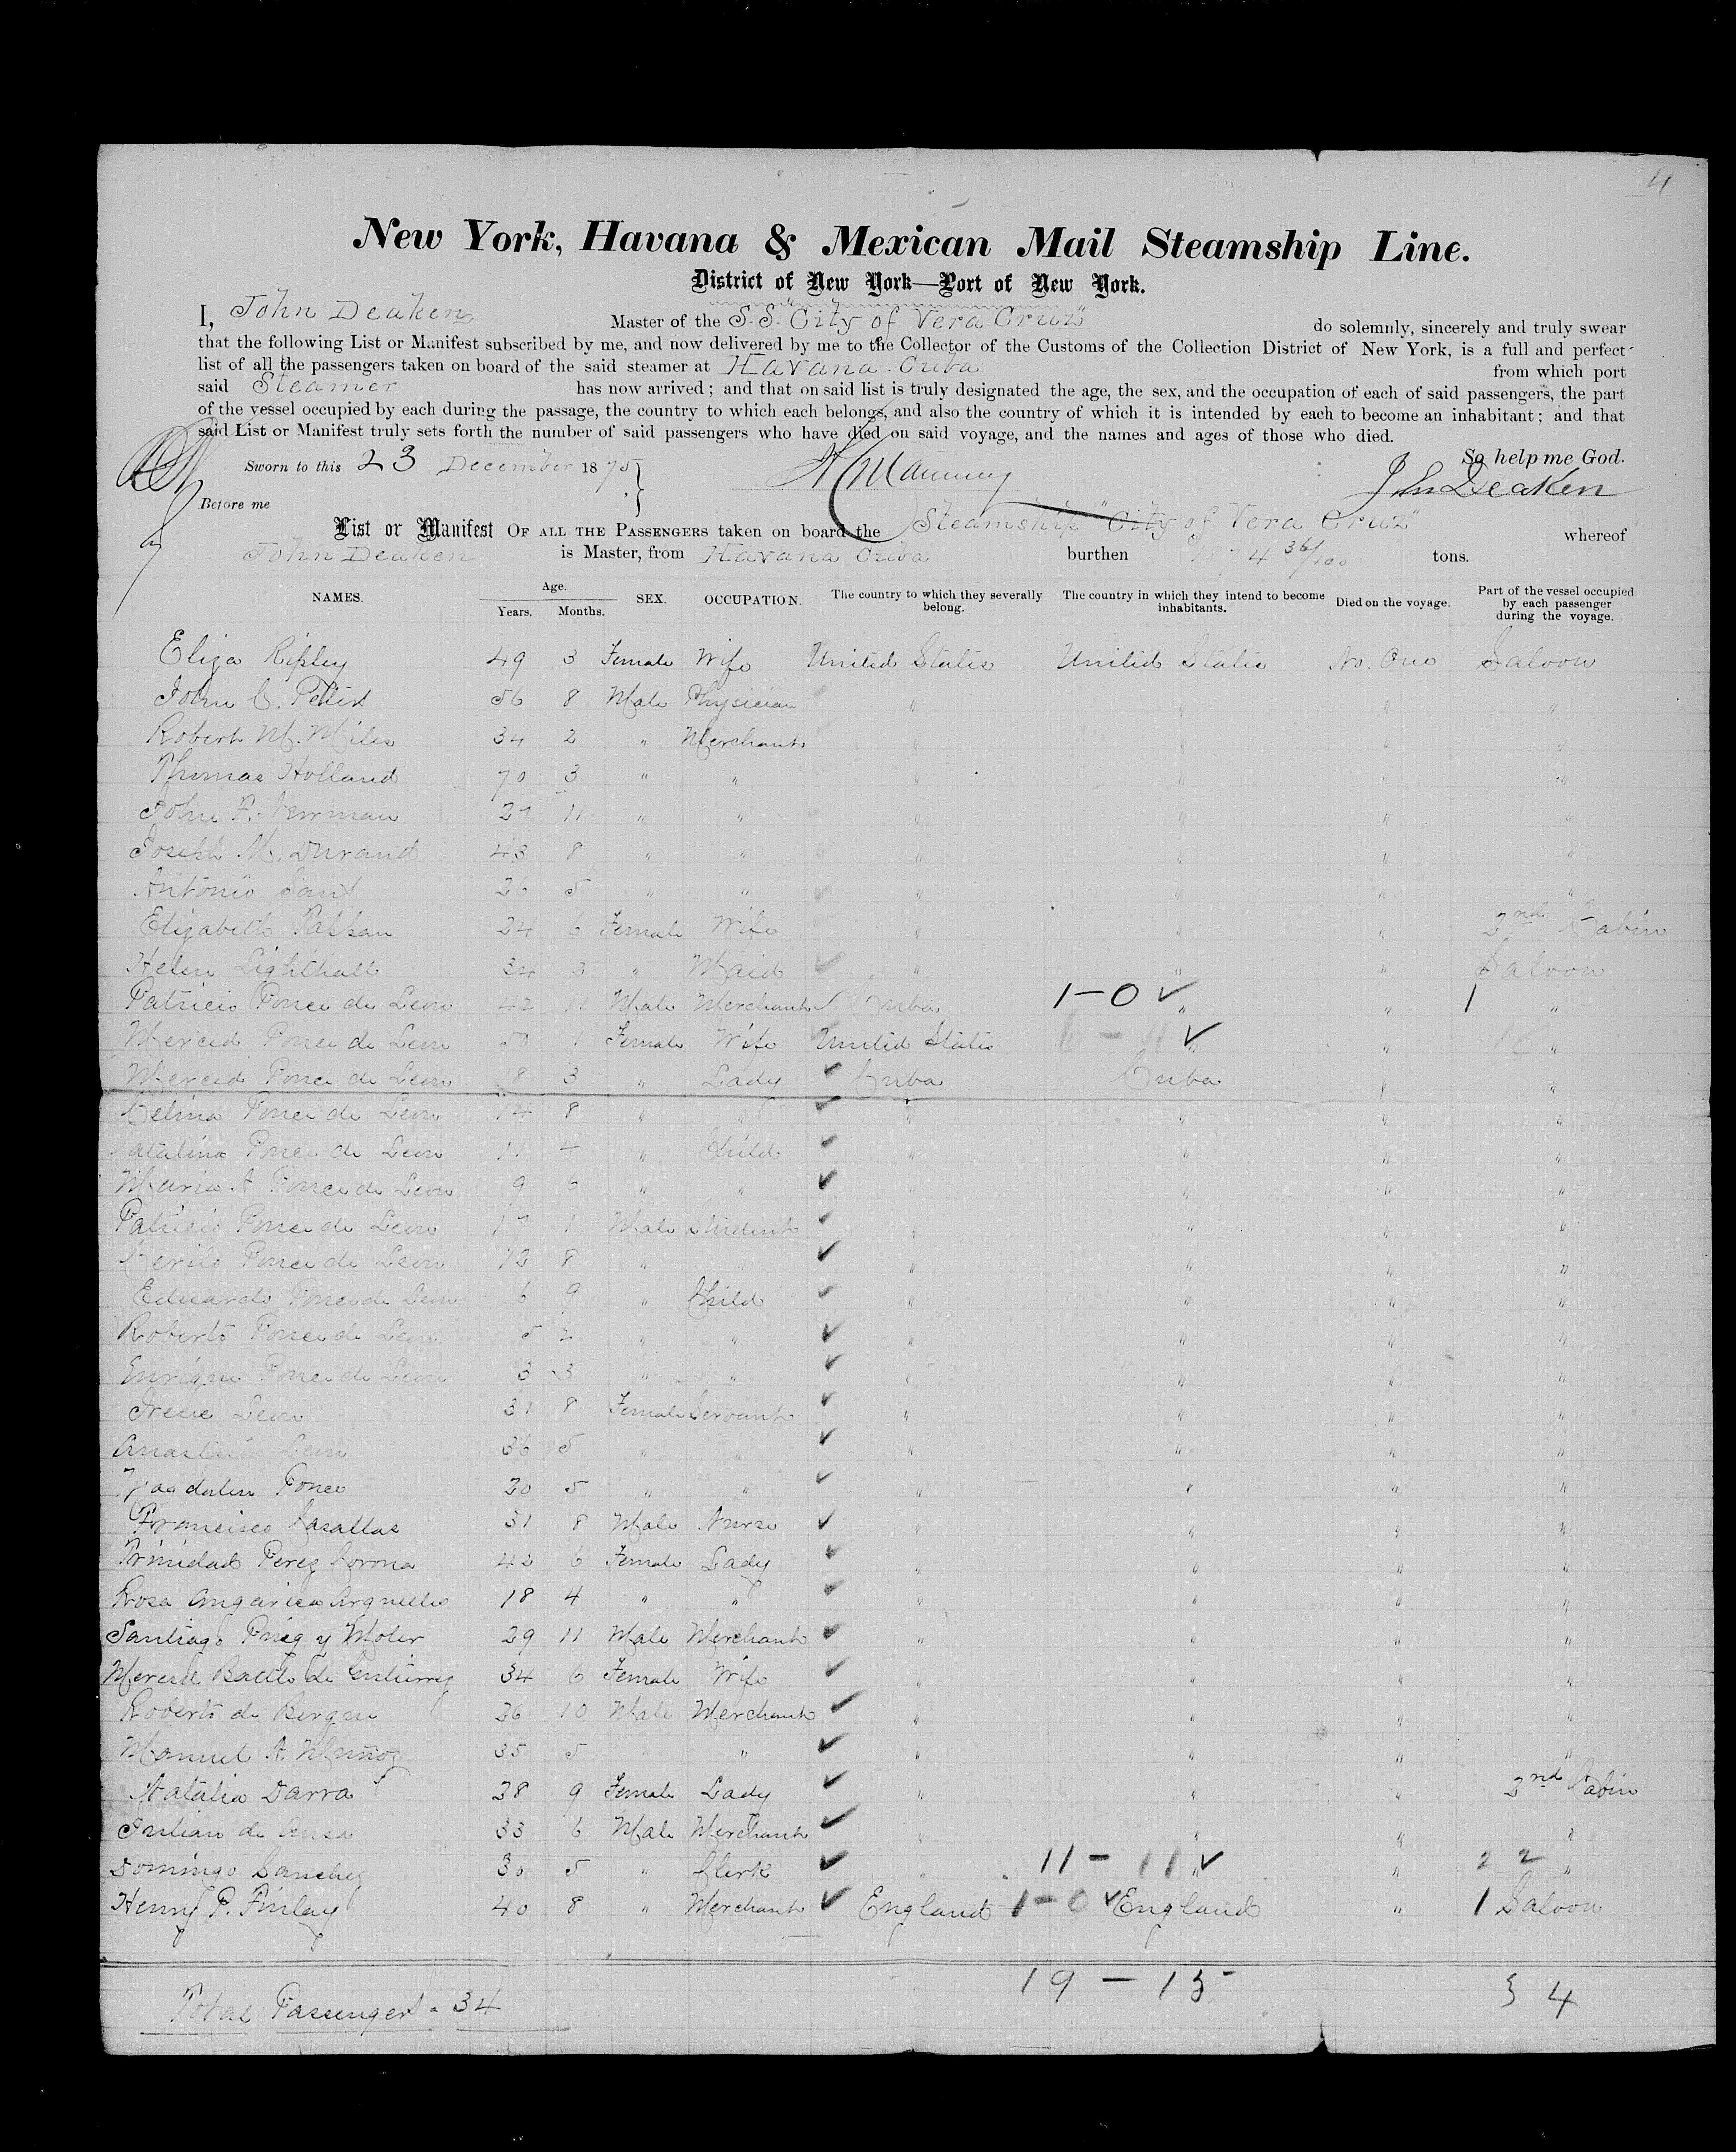 4
New York, Havana & Mexican Mail Steamship Line.
District of New York—Port of New York.
I, John Deaken Master of the S.S. "City of Vera Cruz" do solemnly, sincerely and truly swear
that the following List or Manifest subscribed by me, and now delivered by me to the Collector of the Customs of the Collection District of New York, is a full and perfect
list of all the passengers taken on board of the said steamer at Havana Cuba from which port
said Steamer has now arrived; and that on said list is truly designated the age, the sex, and the occupation of each of said passengers, the part
of the vessel occupied by each during the passage, the country to which each belongs, and also the country of which it is intended by each to become an inhabitant; and that
said List or Manifest truly sets forth the number of said passengers who have died on said voyage, and the names and ages of those who died.
So help me God.
Sworn to this 23 December 1875 Jn Deaken
Before me
List or Manifest OF ALL THE PASSENGERS taken on board the Steamship "City of Vera Cruz" whereof
John Deaken is Master, from Havana Cuba burthen 1874 36/100 tons.
NAMES. Age. Years. Months. SEX. OCCUPATION. The country to which they severally belong. The country in which they intend to become inhabitants. Died on the voyage. Part of the vessel occupied by each passenger during the voyage.
Eliza Ripley 49 3 Female Wife United States United States No. One Saloon
John C. 56 8 Male Physician " " " "
Robert M. Miles 34 2 " Merchant " " " "
Thomas Holland 70 3 " " " " " "
John F. 27 11 " " " " " "
Joseph M. Durand 43 8 " " " " " "
Antonio 26 5 " " " " " "
Elizabeth 24 6 Female Wife " " " 2nd Cabin
Helen Lighthall 34 3 " Maid " " " Saloon
Patricio Ponce de Leon 42 11 Male Merchant Cuba 1-0 ✓ " " 1 "
Merced Ponce de Leon 50 1 Female Wife United States ✓ " " "
Merced Ponce de Leon 18 3 " Lady ✓ Cuba Cuba " "
Celina Ponce de Leon 14 8 " " ✓ " " " "
Catalina Ponce de Leon 11 4 " Child ✓ " " " "
Maria A Ponce de Leon 9 6 " " ✓ " " " "
Patricio Ponce de Leon 17 1 Male Student ✓ " " " "
Ponce de Leon 12 8 " ✓ " " " "
Eduardo Ponce de Leon 6 9 " Child ✓ " " " "
Roberto Ponce de Leon 5 2 " " ✓ " " " "
Enrique Ponce de Leon 3 3 " " ✓ " " " "
Irene Leon 31 8 Female Servant ✓ " " " "
Anastasia Leon 36 5 " " ✓ " " " "
Magdalen Ponce 20 5 " " ✓ " " " "
Francisco Casallas 31 8 Male Nurse ✓ " " " "
Trinidad Perez Corona 42 6 Female Lady ✓ " " " "
Rosa Angarica Arguelles 18 4 " " ✓ " " " "
Santiago Puig y Moler 29 11 Male Merchant ✓ " " " "
Merced de Gutierrez 34 6 Female Wife ✓ " " " "
Roberto de Bergue 26 10 Male Merchant ✓ " " " "
Manuel A. Muñoz 35 5 " " ✓ " " " "
Natalia Darra 28 9 Female Lady ✓ " " " 2nd Cabin
Julian de 33 6 Male Merchant ✓ " " " "
Domingo Sanchez 30 5 " Clerk ✓ " 11 - 11 ✓ " " 22 "
Henry P. Finlay 40 8 " Merchant ✓ England 1-0 ✓ England " 1 Saloon
19 - 15 34
Total Passengers = 34